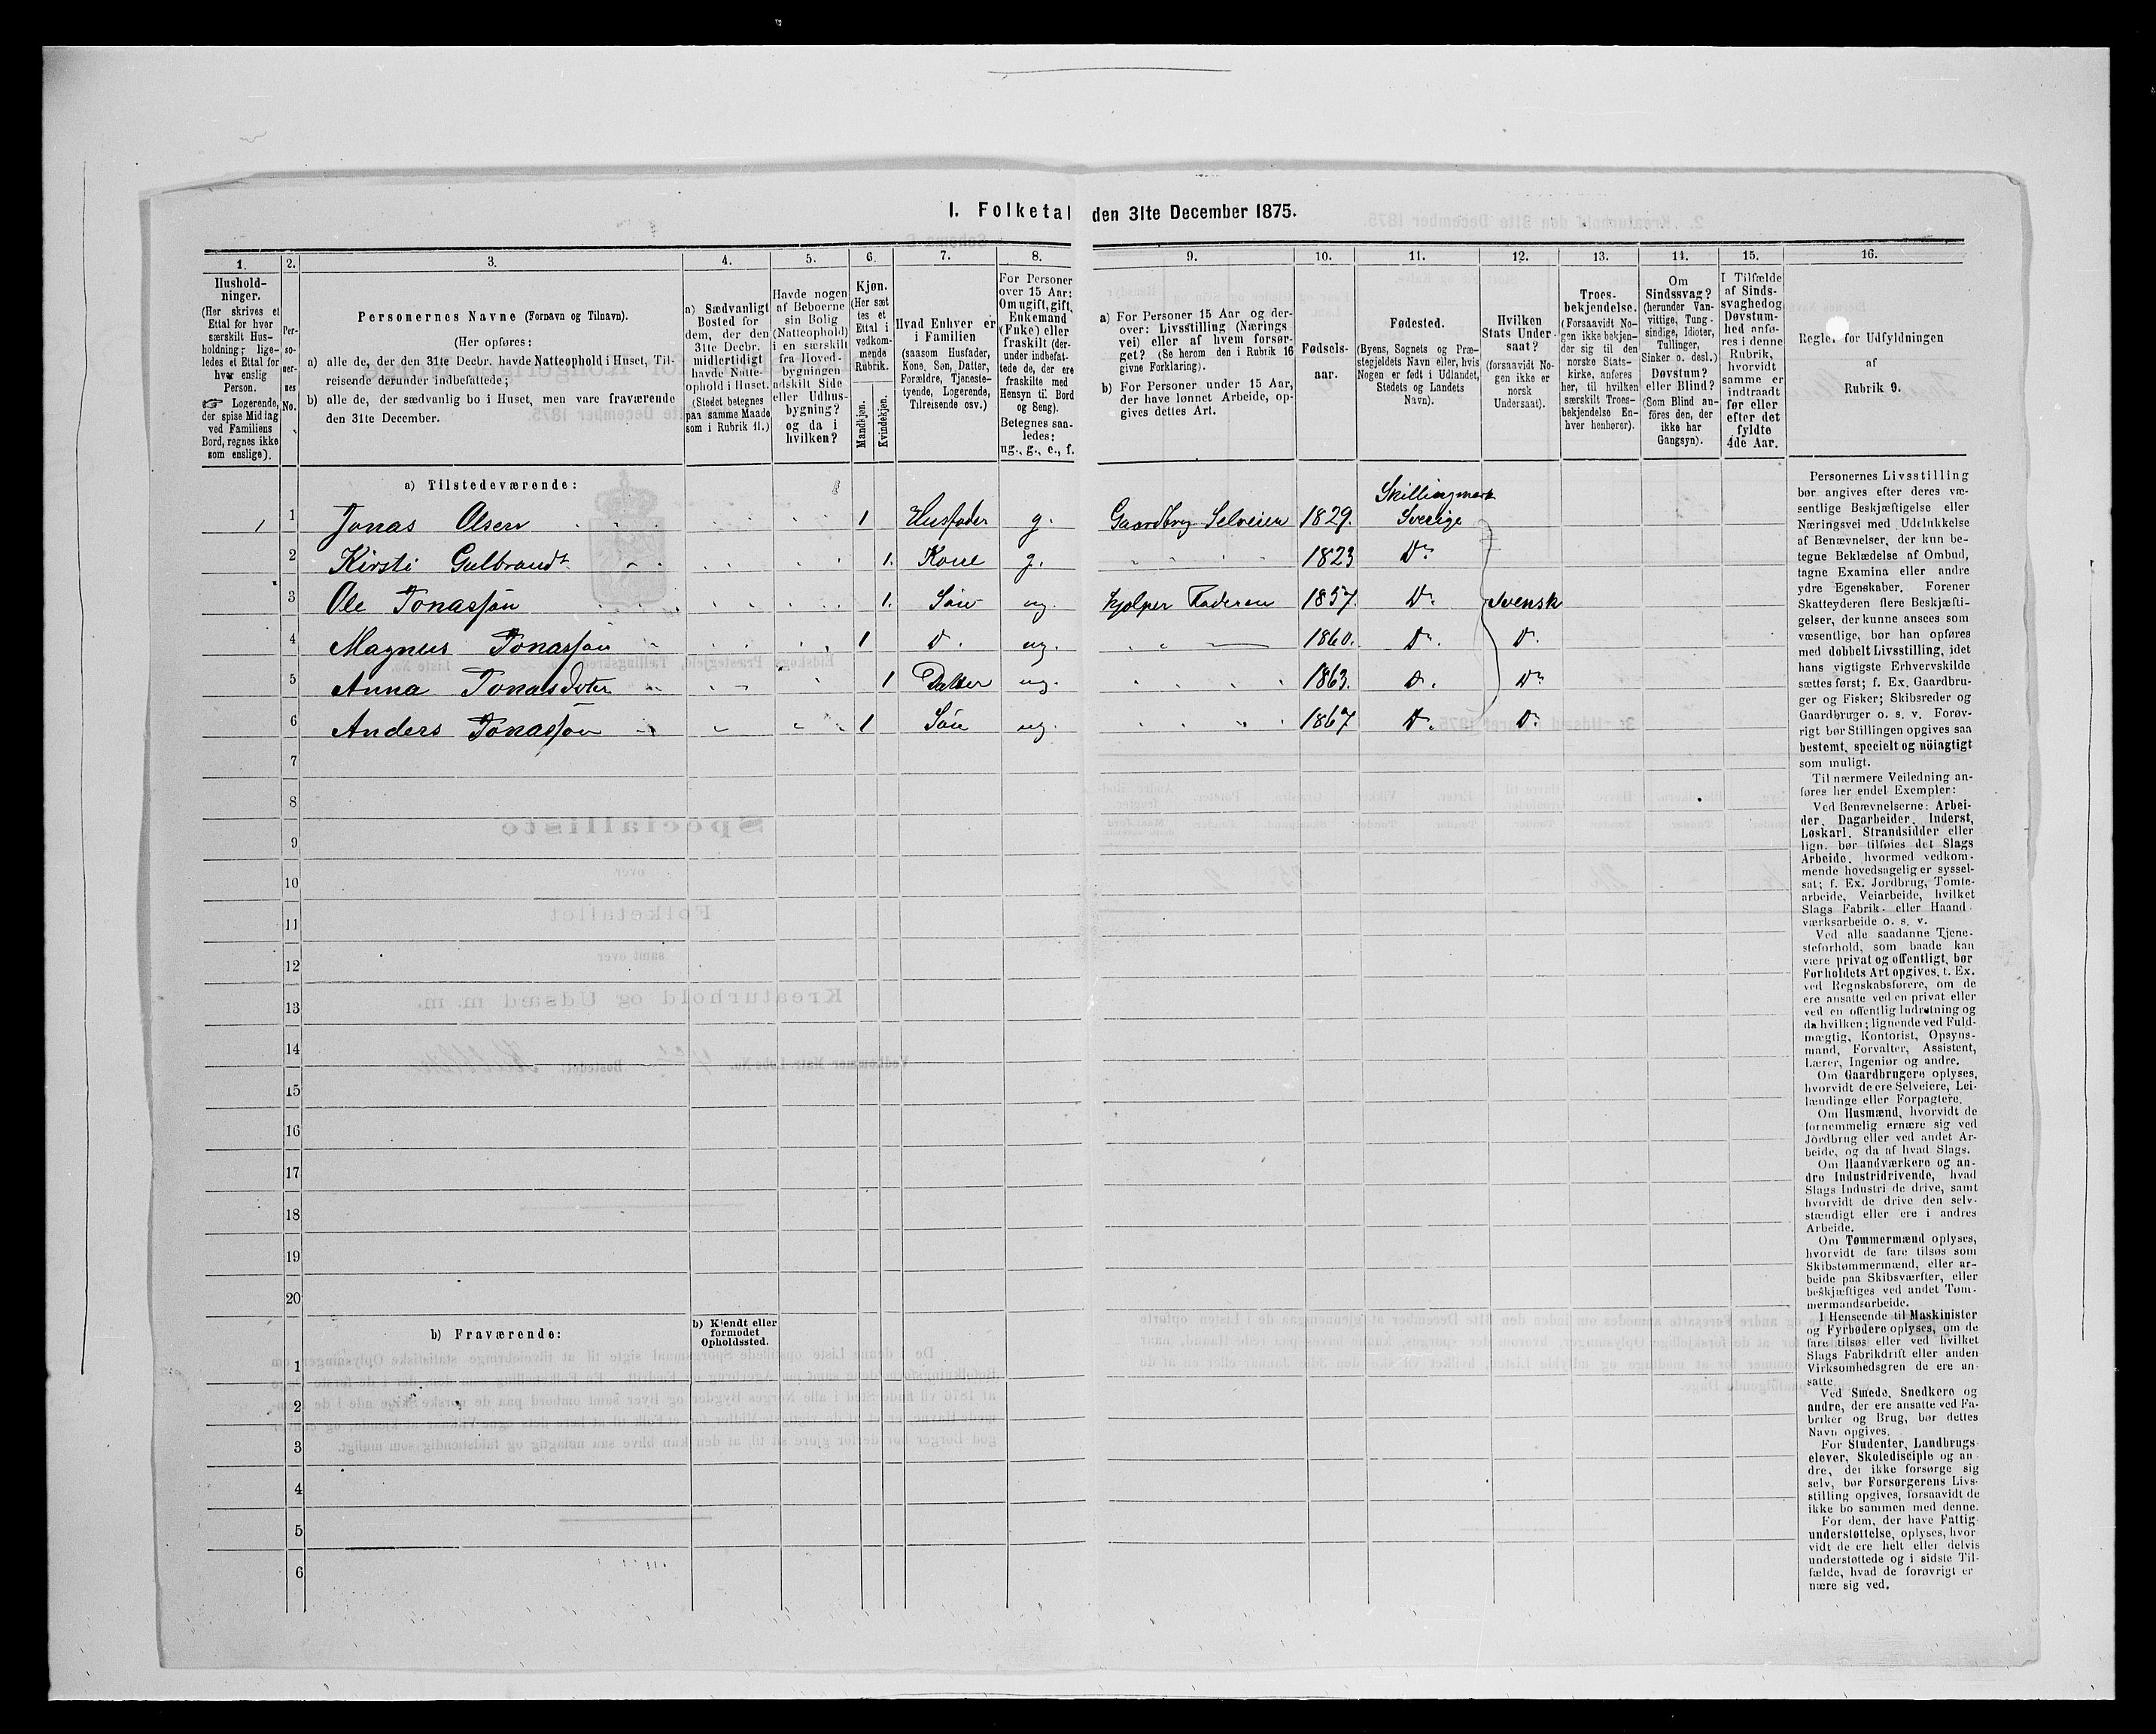 1. Folketal den 31te December 1875.
1. 2. 3. 4. 5. 6. 7. 8. 9. 10. 11. 12. 13. 14. 15. 16.
Husholdninger.
(Her skrives et
Ettal for hver
særskilt Hus-
holdning; lige-
ledes et Ettal for
hver enslig
Person.
☞ Logerende,
der spise Middag
ved Familiens
Bord, regnes ikke
som enslige).
Per-
so-
ner-
nes
No.
Personernes Navne (Fornavn og Tilnavn).
(Her opføres:
a) alle de, der den 31te Decbr. havde Natteophold i Huset, Til-
reisende derunder indbefattede;
b) alle de, der sædvanlig bo i Huset, men vare fraværende
den 31te December.
a) Sædvanligt
Bosted for
dem, der den
31te Decbr.
midlertidigt
havde Natte-
ophold i Huset.
(Stedet betegnes
paa samme Maade
som i Rubrik 11.)
Havde nogen
af Beboerne
sin Bolig
(Natteophold)
i en særskilt
fra Hoved-
bygningen
adskilt Side
eller Udhus-
bygning?
og da i
hvilken?
Kjøn.
(Her sæt
tes et
Ettal i
vedkom-
mende
Rubrik.
Mandkjøn.
Kvindekjøn.
Hvad Enhver er
i Familien
(saasom Husfader,
Kone, Søn, Datter,
Forældre, Tjeneste-
tyende, Logerende,
Tilreisende osv.)
For Personer
over 15 Aar:
Om ugift, gift,
Enkemand
(Enke) eller
fraskilt (der-
under indbefat-
tede de, der ere
fraskilte med
Hensyn til Bord
og Seng).
Betegnes saa-
ledes:
ug., g., e., f.
a) For Personer 15 Aar og der-
over: Livsstilling (Nærings
vei) eller af hvem forsør-
get? (Se herom den i Rubrik 16
givne Forklaring).
b) For Personer under 15 Aar,
der have lønnet Arbeide, op-
gives dettes Art.
Fødsels-
aar.
Fødested.
(Byens, Sognets og Præ-
stegjeldets Navn eller, hvis
Nogen er født i Udlandet,
Stedets og Landets
Navn).
Hvilken
Stats Under-
saat?
(forsaavidt No-
gen ikke er
norsk
Undersaat).
Troes-
bekjendelse.
(Forsaavidt No-
gen ikke bekjen-
der sig til den
norske Stats-
kirke, anføres
her, til hvilken
særskilt Troes-
bekjendelse En-
hver henhører).
Om
Sindssvag?
(herunder Van-
vittige, Tung-
sindige, Idioter,
Tullinger,
Sinker o. desl.)
Døvstum?
eller Blind?
(Som Blind an-
føres den, der
ikke har
Gangsyn).
I Tilfælde
af Sinds-
svaghed og
Døvstum-
hed anfø-
res i denne
Rubrik,
hvorvidt
samme er
indtraadt
før eller
efter det
fyldte
4de Aar.
Regler for Udfyldningen
af
Rubrik 9.
a) Tilstedeværende:
Skillingmark
1 1 Jonas Olsen 1 Husfader g. Gaardbrug Selveier 1829. Sverige
2 Kirsti Gulbrandt 1. Kone g. 1823 Do
3 Ole Jonassøn 1. Søn ug. hjelper Faderen 1857. Do. Svensk
4 Magnus Jonassøn 1 D. ug. 1860. Do. Do.
5 Anna Jonasdoter 1 Datter ug. 1863. D. Do
6 Anders Jonassøn 1 Søn ug. 1867 D. D.
7
8
9
10
11
12
13
14
15
16
17
18
19
20
b) Fraværende:
b) Kjendt eller
formodet
Opholdssted.
1
2
3
4
5
6
Personernes Livsstilling
bør angives efter deres væ-
sentlige Beskjæftigelse eller
Næringsvei med Udelukkelse
af Benævnelser, der kun be-
tegne Beklædelse af Ombud,
tagne Examina eller andre
ydre Egenskaber. Forener
Skatteyderen flere Beskjæfti-
gelser, der kunne ansees som
væsentlige, bør han opføres
med dobbelt Livsstilling, idet
hans vigtigste Erhvervskilde
sættes først; f. Ex. Gaardbru-
ger og Fisker; Skibsreder og
Gaardbruger o. s. v. Forøv-
rigt bør Stillingen opgives saa
bestemt, specielt og nöiagtigt
som muligt.
Til nærmere Veiledning an-
føres her endel Exempler:
Ved Benævnelserne: Arbei-
der, Dagarbeider, Inderst,
Løskarl, Strandsidder eller
lign. bør tilføies det Slags
Arbeide, hvormed vedkom-
mende hovedsagelig er syssel-
sat; f. Ex. Jordbrug, Tomte-
arbeide, Veiarbeide, hvilket
Slags Fabrik- eller Haand-
værksarbeide o. s. v.
Ved alle saadanne Tjene-
steforhold, som baade kan
være privat og offentligt, bør
Forholdets Art opgives, f. Ex.
ved Regnskabsførere, om de
ere ansatte ved en privat eller
ved en offentlig Indretning og
da hvilken; lignende ved Fuld-
mægtig, Kontorist, Opsyns-
mand, Forvalter, Assistent,
Lærer, Ingeniør og andre.
Om Gaardbrugere oplyses,
hvorvidt de ere Selveiere, Lei-
lændinge eller Forpagtere.
Om Husmænd, hvorvidt de
fornemmelig ernære sig ved
Jordbrug eller ved andet Ar-
beide, og da af hvad Slags.
Om Haandværkere og an-
dre Industridrivende, hvad
Slags Industri de drive, samt
hvorvidt de drive den selv-
stændigt eller ere i andres
Arbeide.
Om Tømmermænd oplyses,
hvorvidt de fare tilsøs som
Skibstømmermænd, eller ar-
beide paa Skibsværfter, eller
beskjæftiges ved andet Tøm-
mermandsarbeide.
I Henseende til Maskinister
og Fyrbødere oplyses, om de
fare tilsøs eller ved hvilket
Slags Fabrikdrift eller anden
Virksomhedsgren de ere an-
satte.
Ved Smede, Snedkere og
andre, der ere ansatte ved Fa-
briker og Brug, bør dettes
Navn opgives.
For Studenter, Landbrugs-
elever, Skoledisciple og an-
dre, der ikke forsørge sig
selv, bør Forsørgerens Livs-
stilling opgives, forsaavidt de
ikke bo sammen med denne.
For dem, der have Fattig-
understøttelse, oplyses, hvor-
vidt de ere helt eller delvis
understøttede og i sidste Til-
fælde, hvad de forøvrigt er-
nære sig ved.